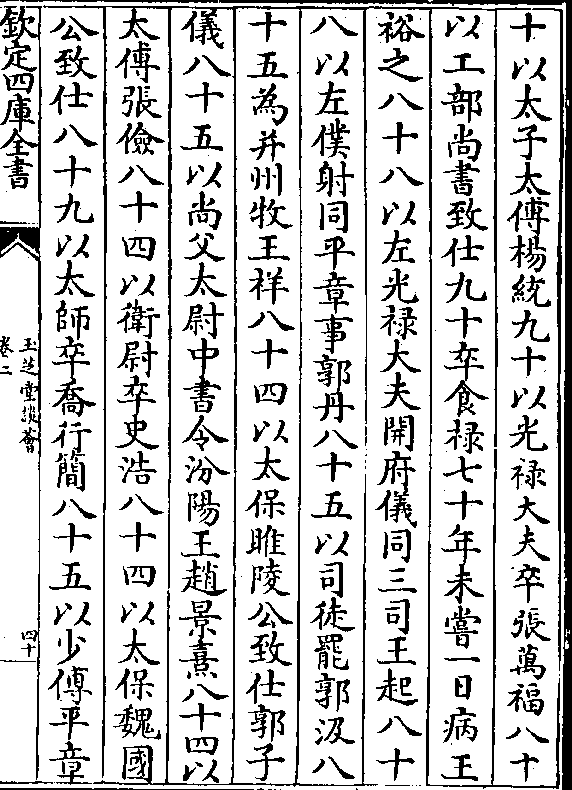 十以太子太傅楊統九十以光禄大夫卒張萬福八十
以工部尚書致仕九十卒食禄七十年未嘗一日病王
裕之八十八以左光禄大夫開府儀同三司王起八十
八以左僕射同平章事郭丹八十五以司徒罷郭汲八
十五為并州牧王祥八十四以太保睢陵公致仕郭子
儀八十五以尚父太尉中書令汾陽王趙景熹八十四以
太傅張儉八十四以衛尉卒史浩八十四以太保魏國
公致仕八十九以太師卒喬行簡八十五以少傅平章
欽定四庫全書
玉芝堂談薈
卷二
四十